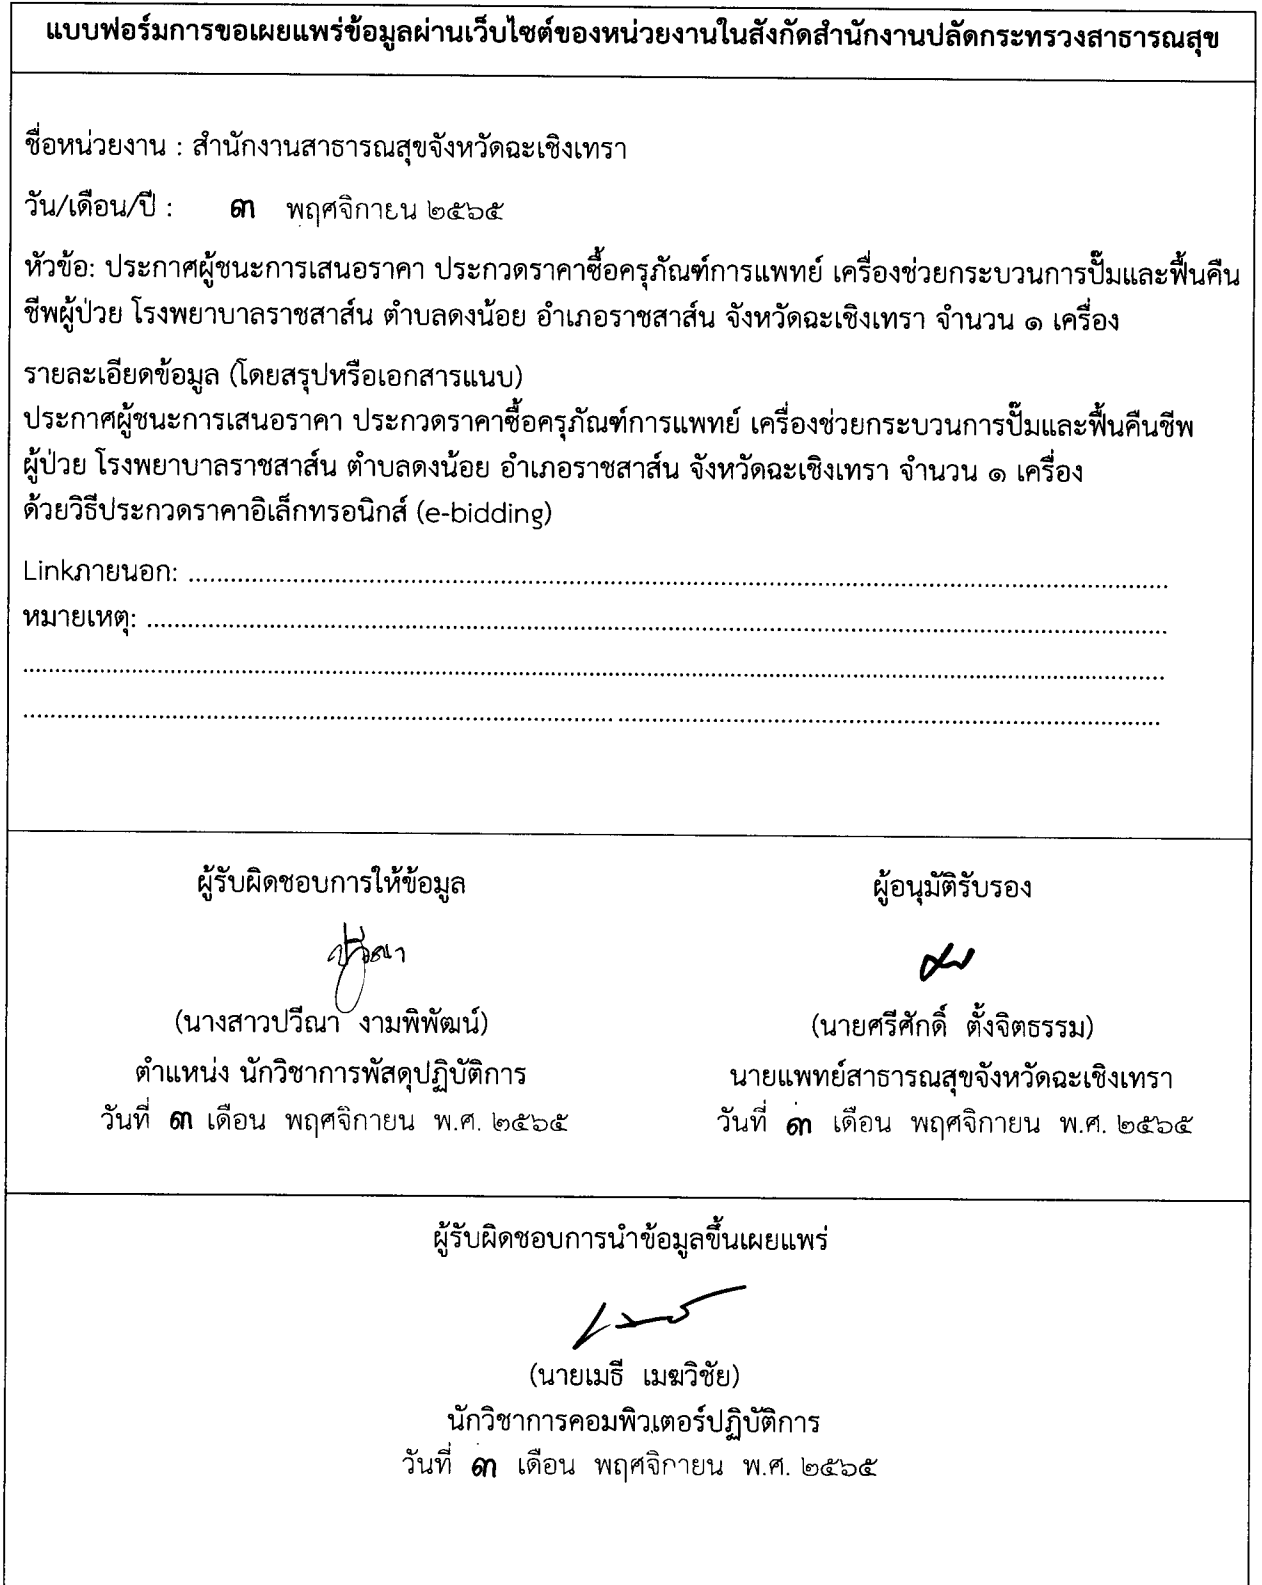 แบบฟอร์มการขอเผยแพร่ข้อมูลผ่านเว็บไซต์ของหน่วยงานในสังกัดสำนักงานปลัดกระทรวงสาธารณสุข
ชื่อหน่วยงาน : สำนักงานสาธารณสุขจังหวัดฉะเชิงเทรา
วัน/เดือน/ปี : ๓ พฤศจิกายน ๒๕๖๕
หัวข้อ: ประกาศผู้ชนะการเสนอราคา ประกวดราคาซื้อครุภัณฑ์การแพทย์ เครื่องช่วยกระบวนการปั๊มและฟื้นคืน
ชีพผู้ป่วย โรงพยาบาลราชสาส์น ตำบลดงน้อย อำเภอราชสาส์น จังหวัดฉะเชิงเทรา จำนวน ๑ เครื่อง
รายละเอียดข้อมูล (โดยสรุปหรือเอกสารแนบ)
ประกาศผู้ชนะการเสนอราคา ประกวดราคาซื้อครุภัณฑ์การแพทย์ เครื่องช่วยกระบวนการปั๊มและฟื้นคืนชีพ
ผู้ป่วย โรงพยาบาลราชสาส์น ตำบลดงน้อย อำเภอราชสาส์น จังหวัดฉะเชิงเทรา จำนวน ๑ เครื่อง
ด้วยวิธีประกวดราคาอิเล็กทรอนิกส์ (e-bidding)
Linkภายนอก: ................................................................
หมายเหตุ: ................................................................
................................................................
................................................................
ผู้รับผิดชอบการให้ข้อมูล
ปวีณา
(นางสาวปวีณา งามพิพัฒน์)
ตำแหน่ง นักวิชาการพัสดุปฏิบัติการ
วันที่ ๓ เดือน พฤศจิกายน พ.ศ. ๒๕๖๕
ผู้อนุมัติรับรอง
(นายศรีศักดิ์ ตั้งจิตธรรม)
นายแพทย์สาธารณสุขจังหวัดฉะเชิงเทรา
วันที่ ๓ เดือน พฤศจิกายน พ.ศ. ๒๕๖๕
ผู้รับผิดชอบการนำข้อมูลขึ้นเผยแพร่
(นายเมธี เมฆวิชัย)
นักวิชาการคอมพิวเตอร์ปฏิบัติการ
วันที่ ๓ เดือน พฤศจิกายน พ.ศ. ๒๕๖๕